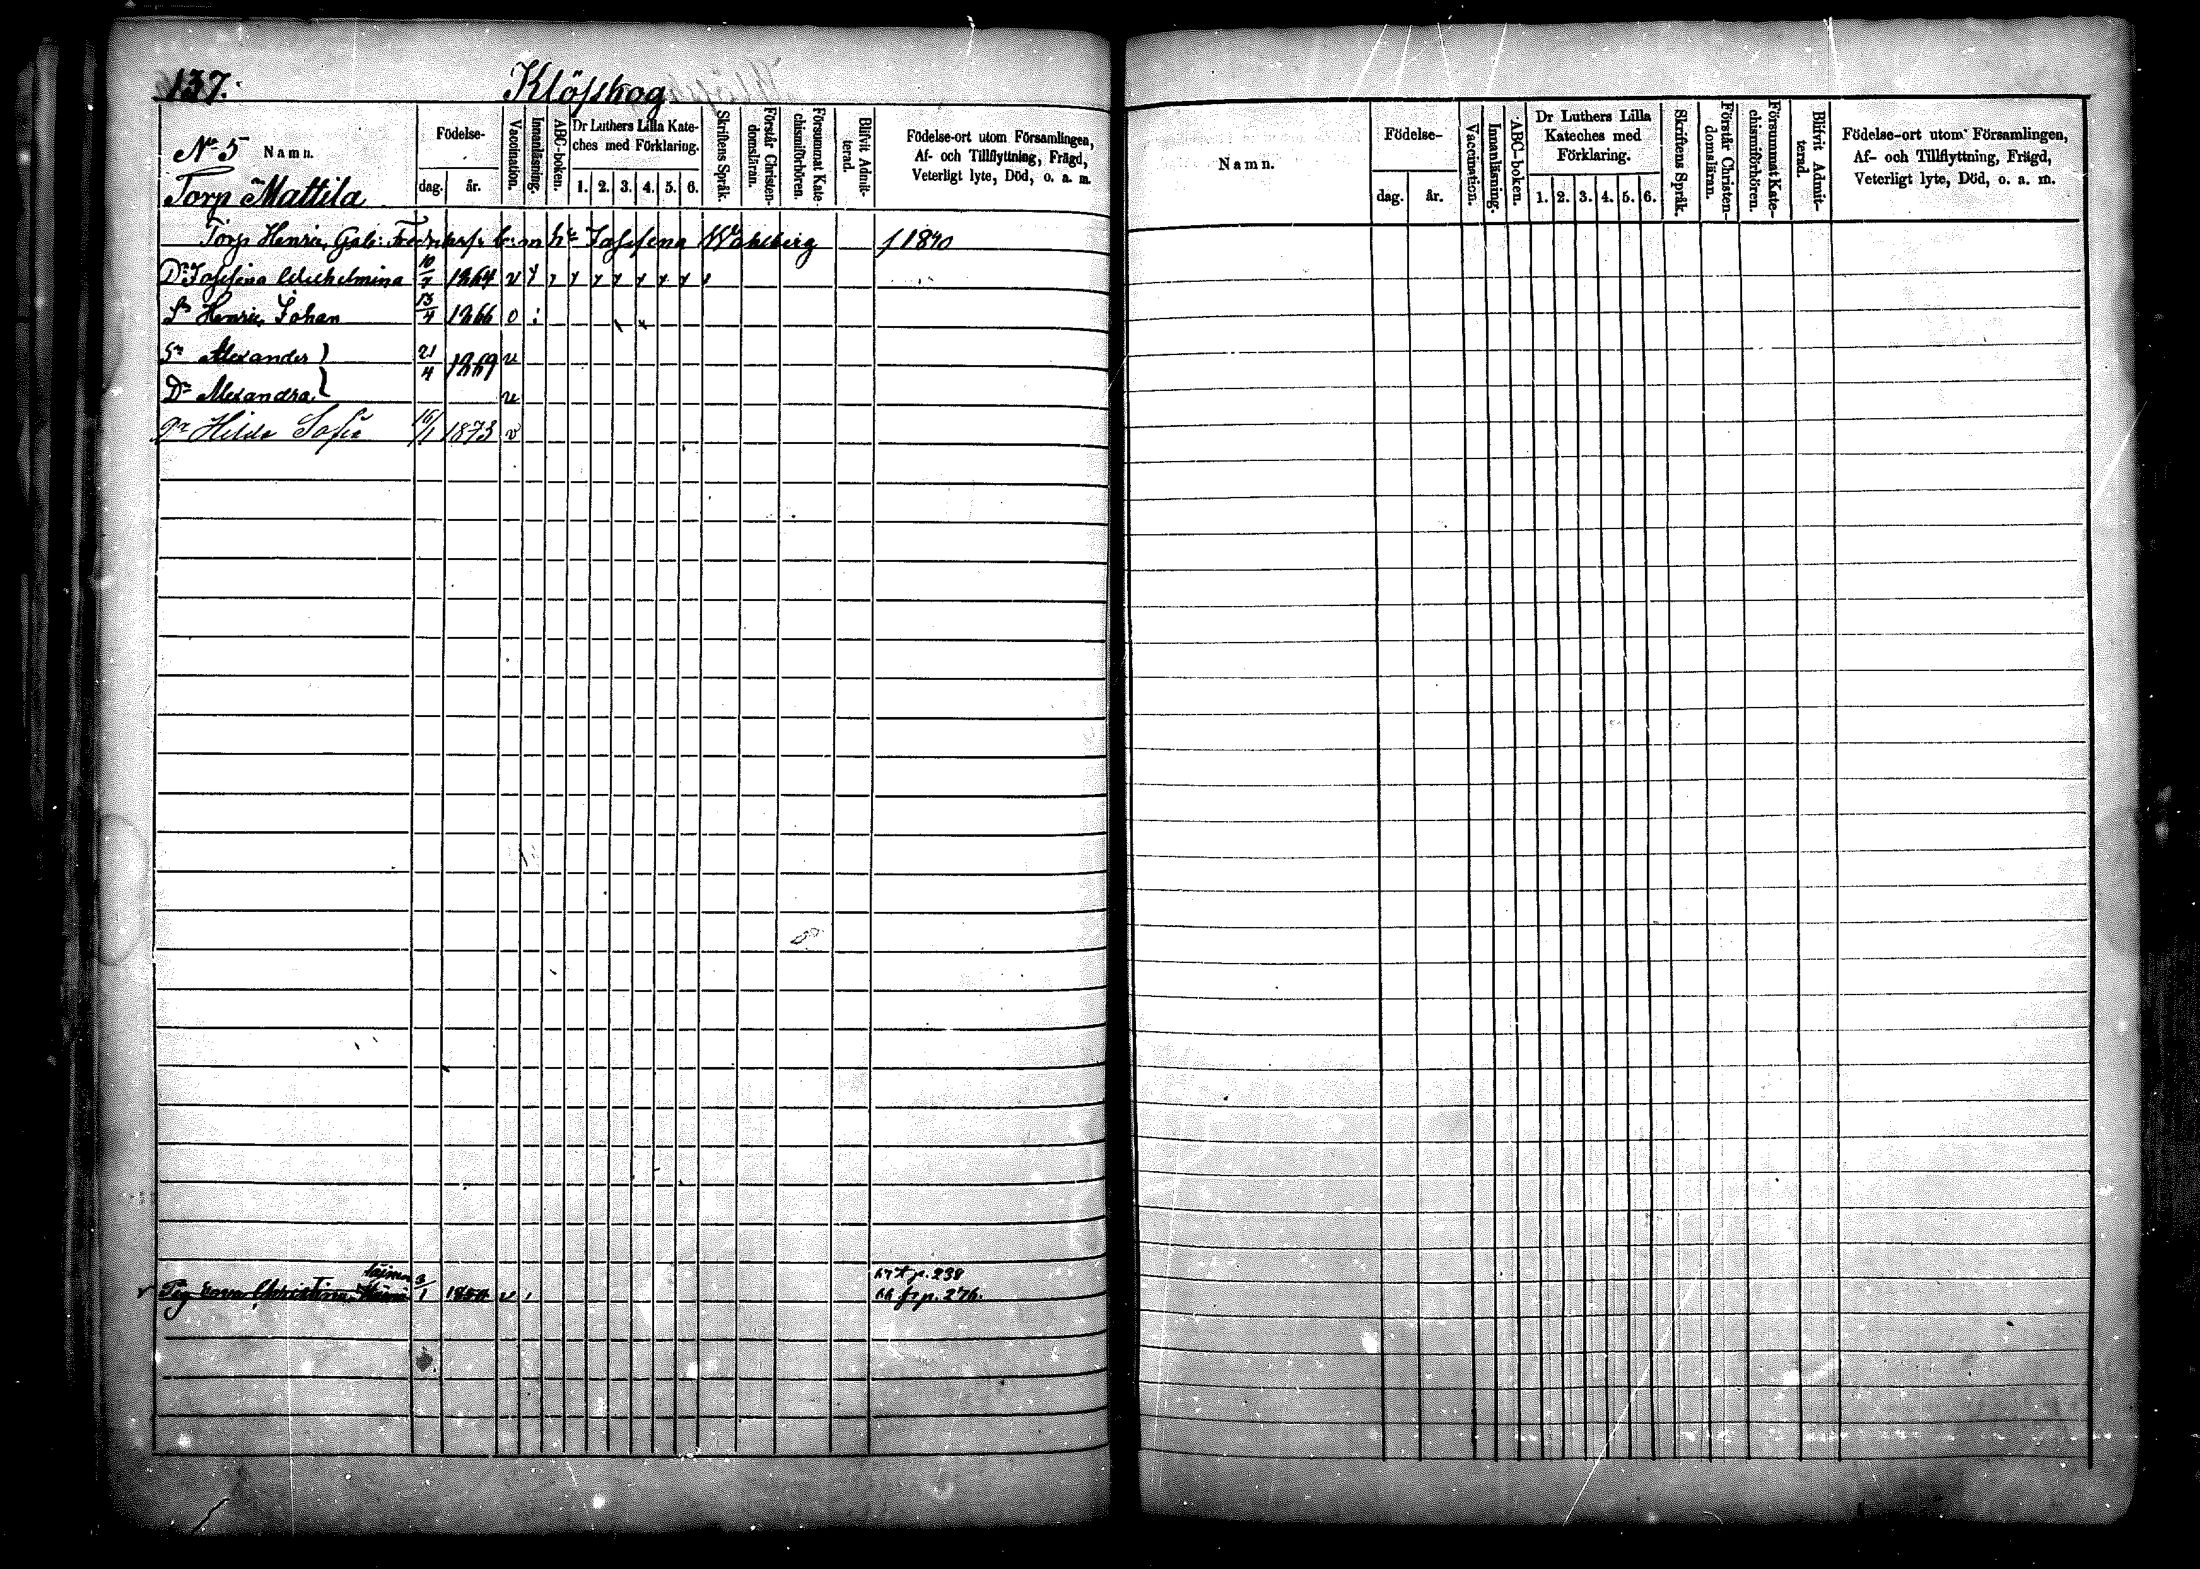 137.
Klöfskog
No 5 Namn.
Torp Mattila
Födelse-
dag. år.
Vaccination.
Innanläsning.
ABC-boken.
Dr Luthers Lilla Kate-
ches med Förklaring.
1. 2. 3. 4. 5. 6.
Skriftens Språk.
Förstår Christen-
domsläran.
Försummat Kate-
chismiförhören.
Blifvit Admit-
terad.
Födelse-ort utom Församlingen,
Af- och Tillflyttning, Frägd,
Veterligt lyte, Död, o. a. m.
Torp Henric Gab: m hu Josefina Wahlberg f 1840
Dr Josefina Wilhelmina 10/7 1864 v
Sn Henric Johan 13/4 1866 v
Sn Alexander 21/4 1869 v
Dr Alexandra v
Dr Hilda Sofia 16/1 1873 v
67 t p. 238
Pig Christina 3/1 v 66 fr p. 276.
Namn.
Födelse-
dag. år.
Vaccination.
Innanläsning.
ABC-boken.
Dr Luthers Lilla
Kateches med
Förklaring.
1. 2. 3. 4. 5. 6.
Skriftens Språk.
Förstår Christen-
domsläran.
Försummat Kate-
chismiförhören.
Blifvit Admit-
terad.
Födelse-ort utom Församlingen,
Af- och Tillflyttning, Frägd,
Veterligt lyte, Död, o. a. m.